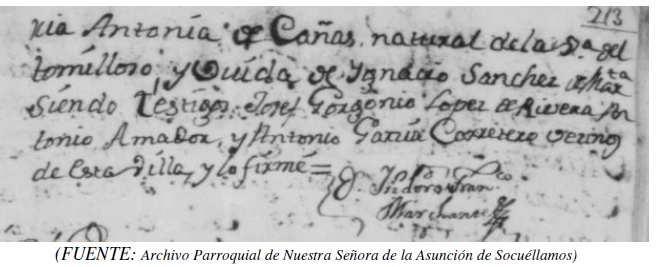 213
ria Antonia de Cañas, natural de la V.a del
tomilloso y Viuda de Ignacio Sanchez de Marta
Siendo testigos Josef Gorgonio Lopez de Rivera An
tonio Amador, y Antonio Garcia Carretero vecinos
de esta Villa, y lo firmé =
D. Isidoro Fran.co
Marchante
(FUENTE: Archivo Parroquial de Nuestra Señora de la Asunción de Socuéllamos)